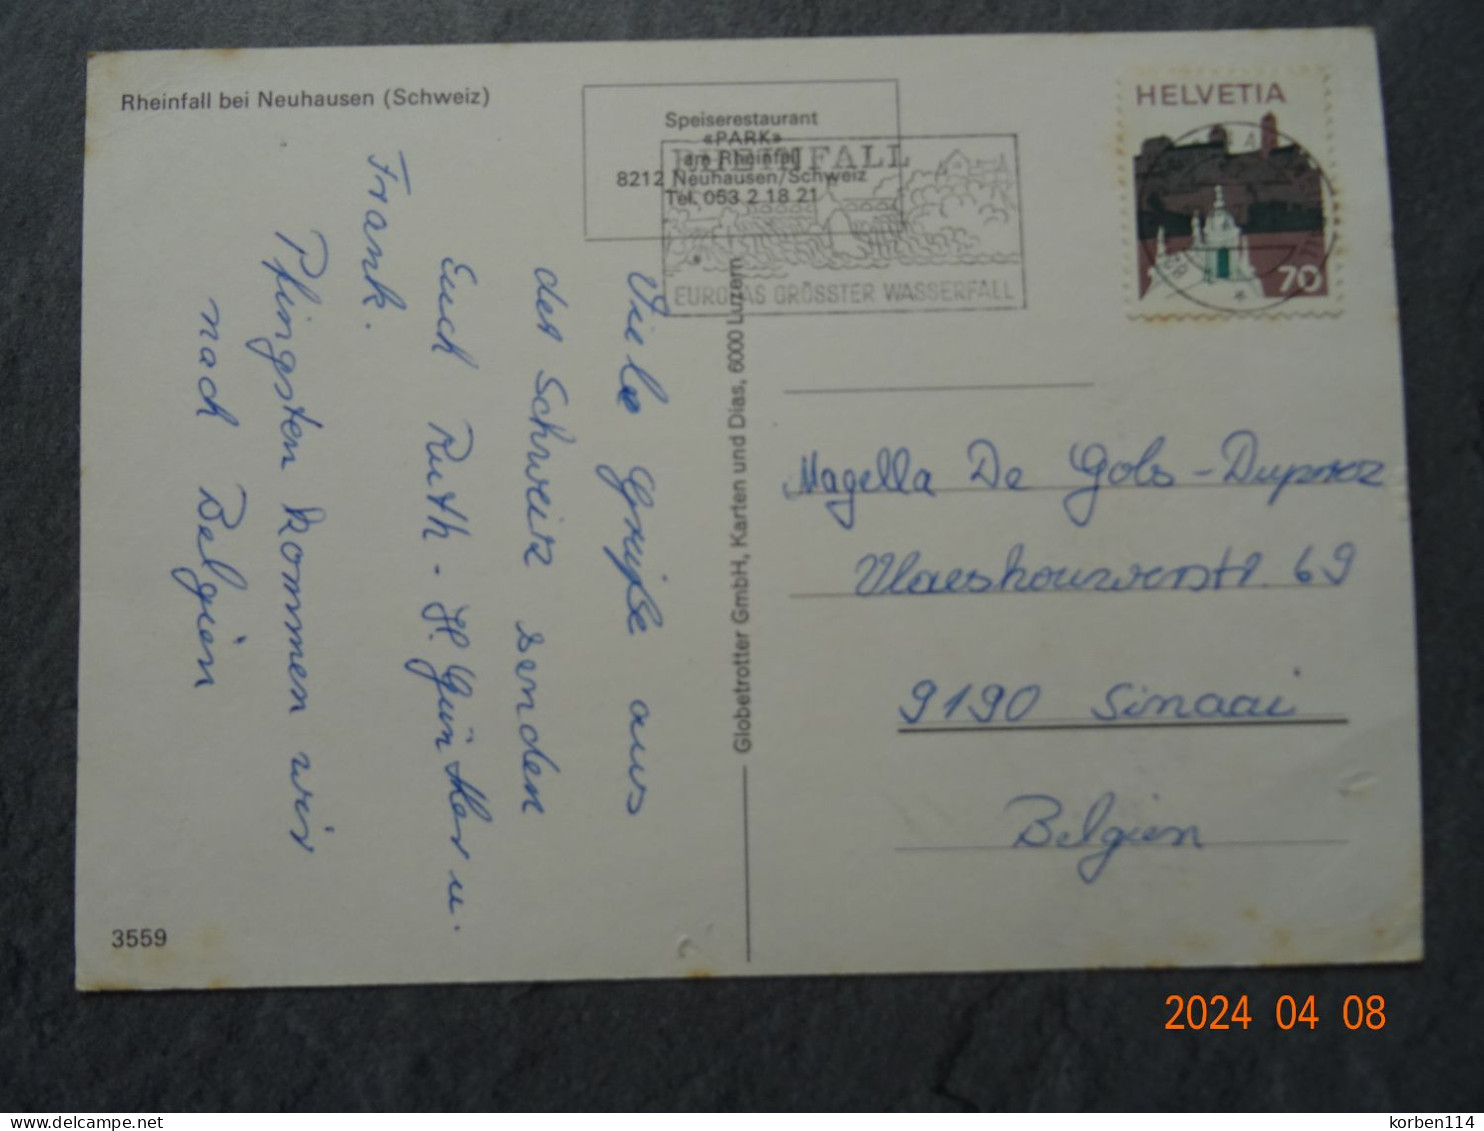 Rheinfall bei Neuhausen (Schweiz)
Speiserestaurant
«PARK»
am Rheinfall
8212 Neuhausen/Schweiz
Tel. 053 2 18 21
RHEINFALL
EUROPAS GRÖSSTER WASSERFALL
HELVETIA
70
Viele Grüße aus
der Schweiz senden
Euch Ruth - H. Günther u.
Frank.
Pfingsten kommen wir
nach Belgien
Globetrotter GmbH, Karten und Dias, 6000 Luzern
Magella De Gols-
69
9190 Sinaai
Belgien
3559
2024 04 08
korben114